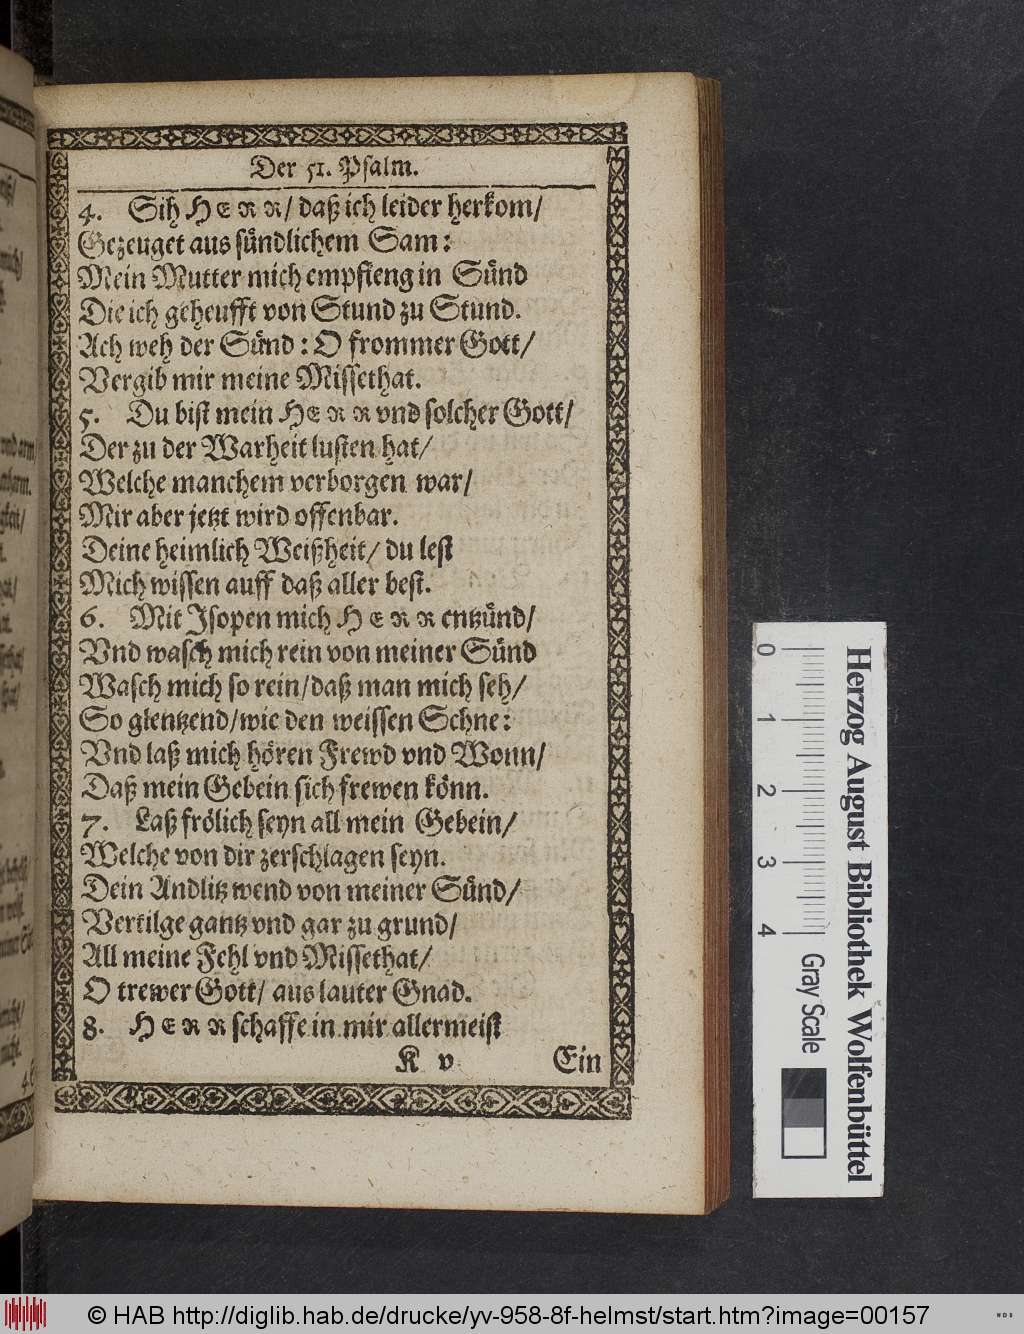 Der 51. Psalm.
4. Sih HERR/ daß ich leider herkom/
Gezeuget aus sündlichem Sam:
Mein Mutter mich empfieng in Sünd
Die ich geheufft von Stund zu Stund.
Ach weh der Sünd: O frommer Gott/
Vergib mir meine Missethat.
5. Du bist mein HERR vnd solcher Gott/
Der zu der Warheit lusten hat/
Welche manchem verborgen war/
Mir aber jetzt wird offenbar.
Deine heimlich Weißheit/ du lest
Mich wissen auff daß aller best.
6. Mit Isopen mich HERR entzünd/
Vnd wasch mich rein von meiner Sünd
Wasch mich so rein/daß man mich seh/
So glentzend/wie den weissen Schne:
Vnd laß mich hören Frewd vnd Wonn/
Daß mein Gebein sich frewen könn.
7. Laß frölich seyn all mein Gebein/
Welche von dir zerschlagen seyn.
Dein Andlitz wend von meiner Sünd/
Vertilge gantz vnd gar zu grund/
All meine Fehl vnd Missethat/
O trewer Gott/ aus lauter Gnad.
8. HERR schaffe in mir allermeist
K v Ein
0 1 2 3 4 Gray Scale
Herzog August Bibliothek Wolfenbüttel
© HAB http://diglib.hab.de/drucke/yv-958-8f-helmst/start.htm?image=00157